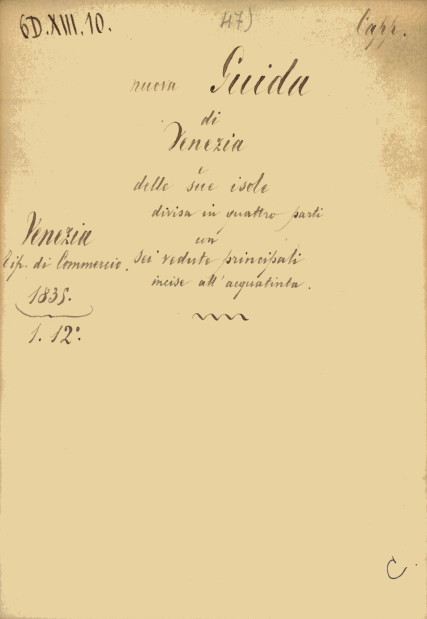 6D.XIII.10.
47)
Capp.
nuova Guida
di
Venezia
e
delle sue isole
divisa in quattro parti
con
sei vedute principali
incise all'acquatinta.
Venezia
Tip. di Commercio.
1835.
1. 12°.
C.